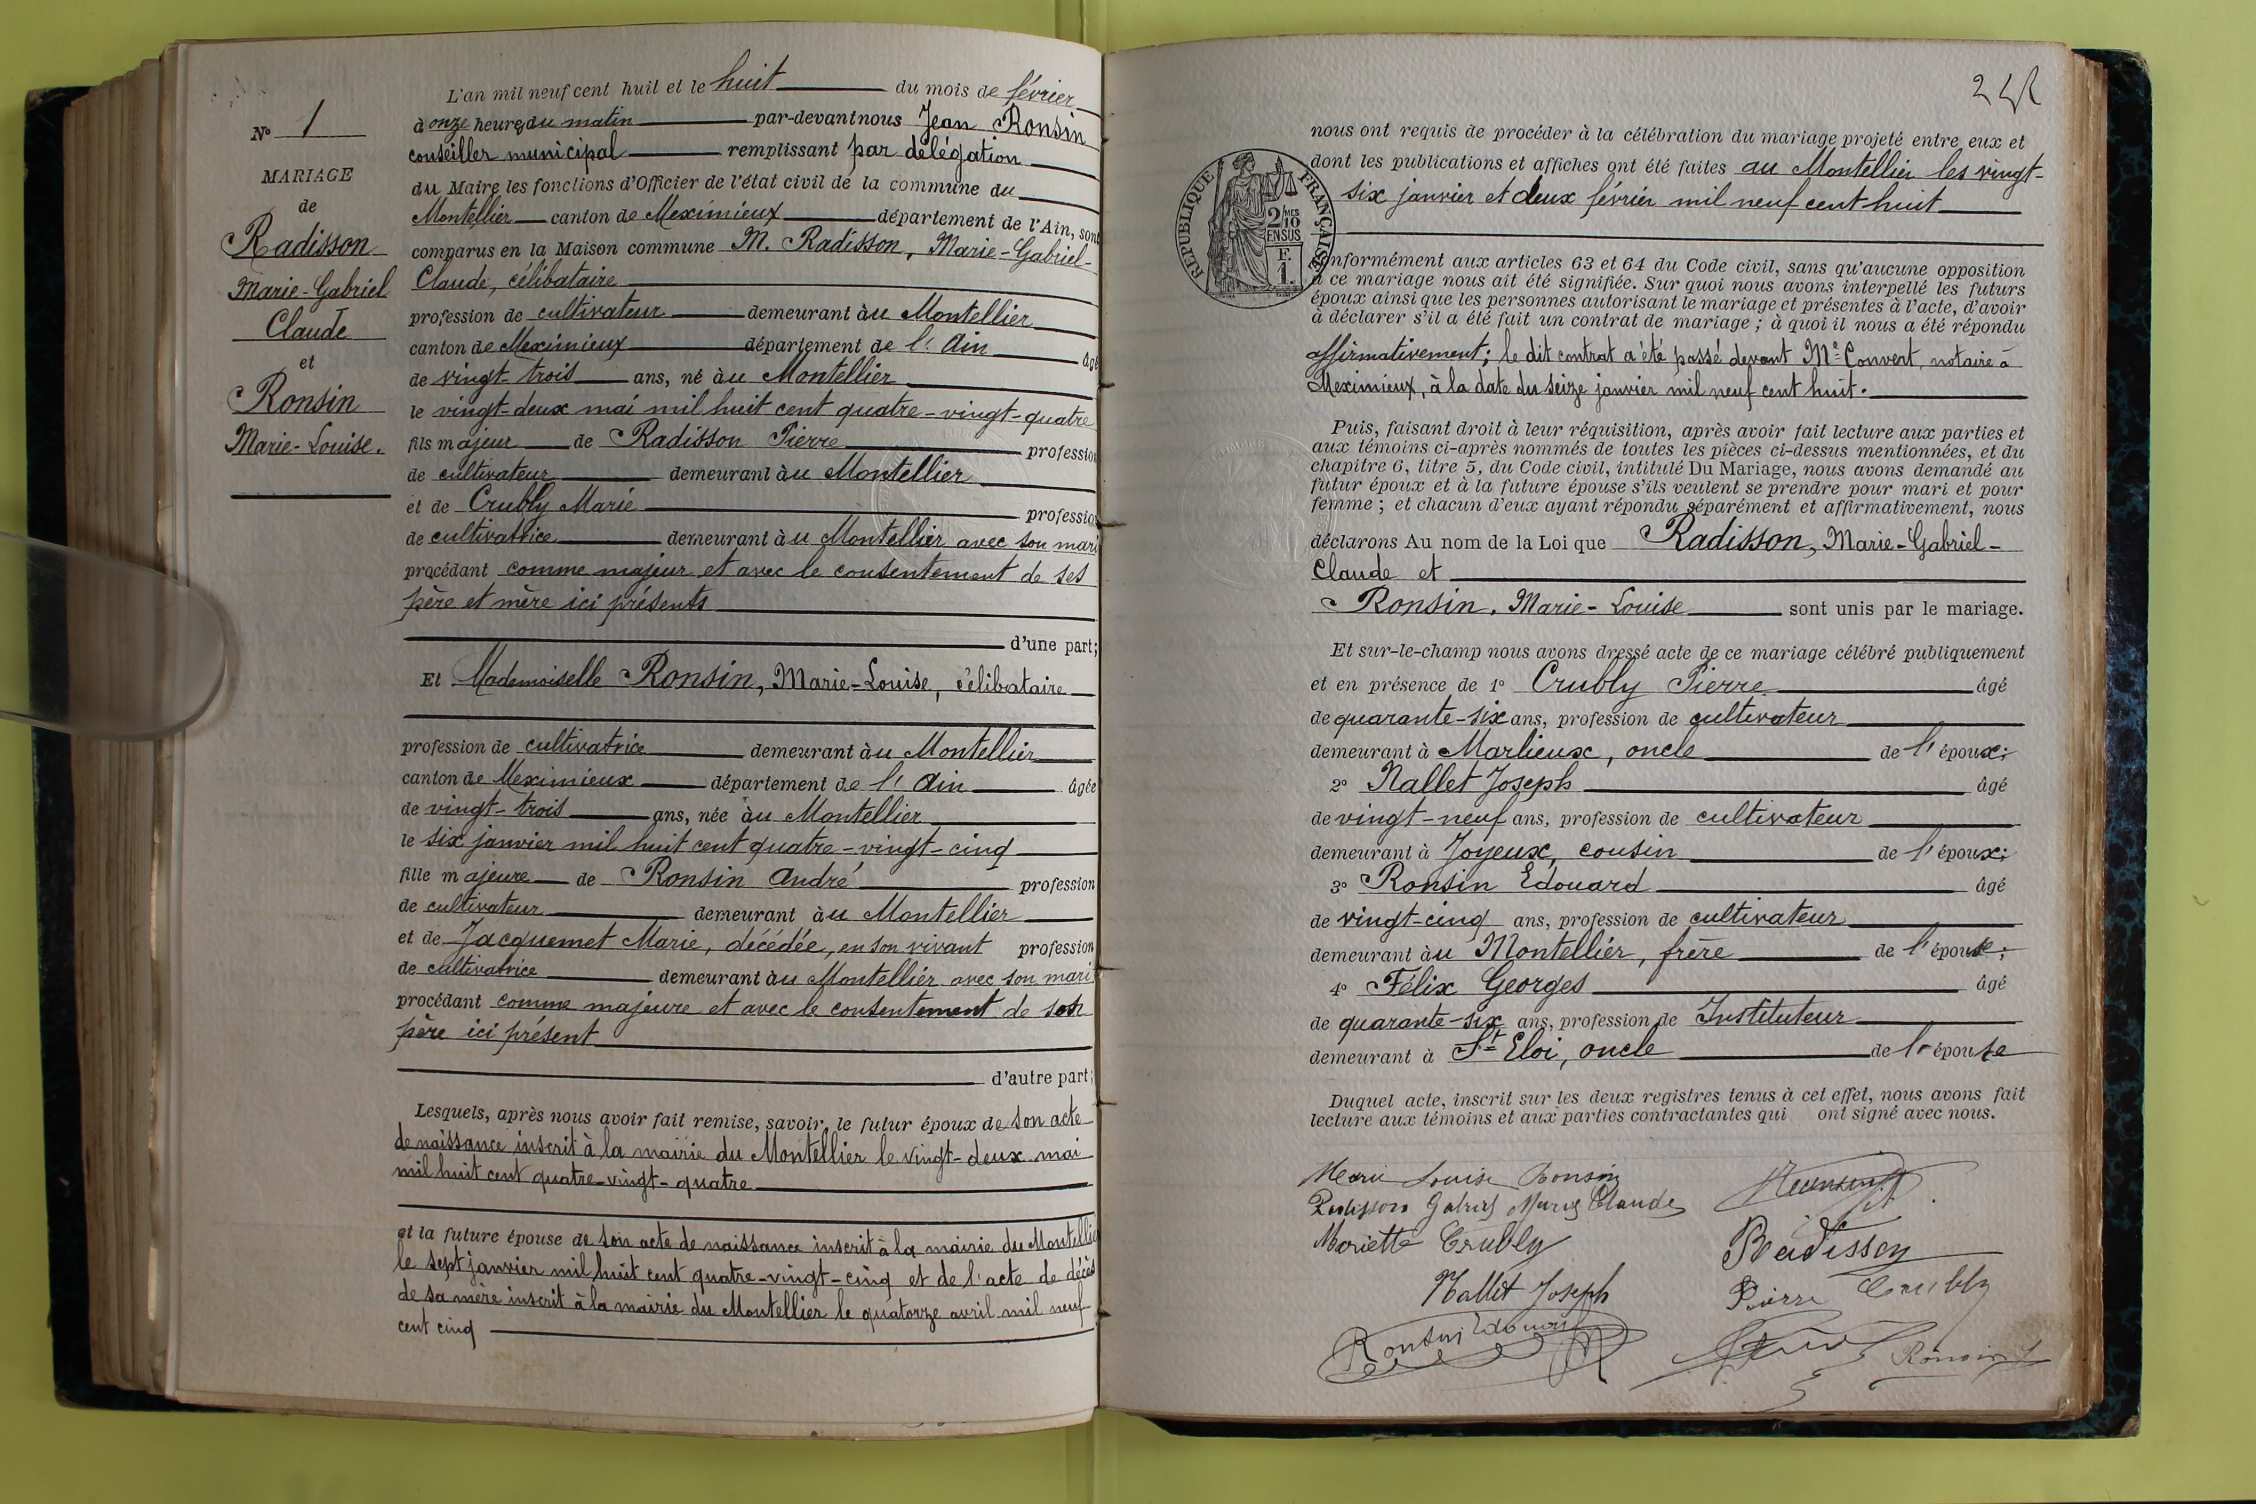 N° 1
MARIAGE
de
Radisson
Marie-Gabriel
Claude
et
Ronsin
Marie-Louise.
L'an mil neuf cent huit et le huit du mois de février
à onze heures du matin par-devant nous Jean Ronsin
conseiller municipal remplissant par délégation
du Maire les fonctions d'Officier de l'état civil de la commune du
Montellier canton de Meximieux département de l'Ain, sont
comparus en la Maison commune M. Radisson, Marie-Gabriel-
Claude, célibataire
profession de cultivateur demeurant àu Montellier
canton de Meximieux département de l'Ain âgé
de vingt-trois ans, né àu Montellier
le vingt-deux mai mil huit cent quatre-vingt-quatre
fils majeur de Radisson Pierre profession
de cultivateur demeurant àu Montellier
et de Crubly Marie profession
de cultivatrice demeurant àu Montellier avec son mari
procédant comme majeur et avec le consentement de ses
père et mère ici présents
d'une part;
Et Mademoiselle Ronsin, Marie-Louise, célibataire
profession de cultivatrice demeurant àu Montellier
canton de Meximieux département de l'Ain âgée
de vingt-trois ans, née àu Montellier
le six janvier mil huit cent quatre-vingt-cinq
fille majeure de Ronsin André profession
de cultivateur demeurant àu Montellier
et de Jacquemet Marie, décédée, en son vivant profession
de cultivatrice demeurant àu Montellier avec son mari
procédant comme majeure et avec le consentement de son
père ici présent
d'autre part;
Lesquels, après nous avoir fait remise, savoir, le futur époux de son acte
de naissance inscrit à la mairie du Montellier le vingt-deux mai
mil huit cent quatre-vingt-quatre
et la future épouse de son acte de naissance inscrit à la mairie du Montellier
le sept janvier mil huit cent quatre-vingt-cinq et de l'acte de décès
de sa mère inscrit à la mairie du Montellier le quatorze avril mil neuf
cent cinq
nous ont requis de procéder à la célébration du mariage projeté entre eux et
dont les publications et affiches ont été faites au Montellier les vingt-
six janvier et deux février mil neuf cent huit
RÉPUBLIQUE FRANÇAISE
2/10
MES
EN SUS
F.
1.
conformément aux articles 63 et 64 du Code civil, sans qu'aucune opposition
à ce mariage nous ait été signifiée. Sur quoi nous avons interpellé les futurs
époux ainsi que les personnes autorisant le mariage et présentes à l'acte, d'avoir
à déclarer s'il a été fait un contrat de mariage ; à quoi il nous a été répondu
affirmativement; le dit contrat a été passé devant Me Convert, notaire à
Meximieux, à la date du seize janvier mil neuf cent huit.
Puis, faisant droit à leur réquisition, après avoir fait lecture aux parties et
aux témoins ci-après nommés de toutes les pièces ci-dessus mentionnées, et du
chapitre 6, titre 5, du Code civil, intitulé Du Mariage, nous avons demandé au
futur époux et à la future épouse s'ils veulent se prendre pour mari et pour
femme ; et chacun d'eux ayant répondu séparément et affirmativement, nous
déclarons Au nom de la Loi que Radisson, Marie-Gabriel-
Claude et
Ronsin, Marie-Louise sont unis par le mariage.
Et sur-le-champ nous avons dressé acte de ce mariage célébré publiquement
et en présence de 1° Crubly Pierre âgé
de quarante-six ans, profession de cultivateur
demeurant à Marlieux, oncle de l'époux;
2° Nallet Joseph âgé
de vingt-neuf ans, profession de cultivateur
demeurant à Joyeux, cousin de l'époux;
3° Ronsin Edouard âgé
de vingt-cinq ans, profession de cultivateur
demeurant àu Montellier, frère de l'épouse;
4° Félix Georges âgé
de quarante-six ans, profession de Instituteur
demeurant à St Eloi, oncle de l'épouse
Duquel acte, inscrit sur les deux registres tenus à cet effet, nous avons fait
lecture aux témoins et aux parties contractantes qui ont signé avec nous.
Marie Louise Ronsin
Radisson Gabriel Marie Claude
Mariette Crubly
Radisson
Nallet Joseph
Pierre Crubly
Ronsin Edouard
Ronsin J